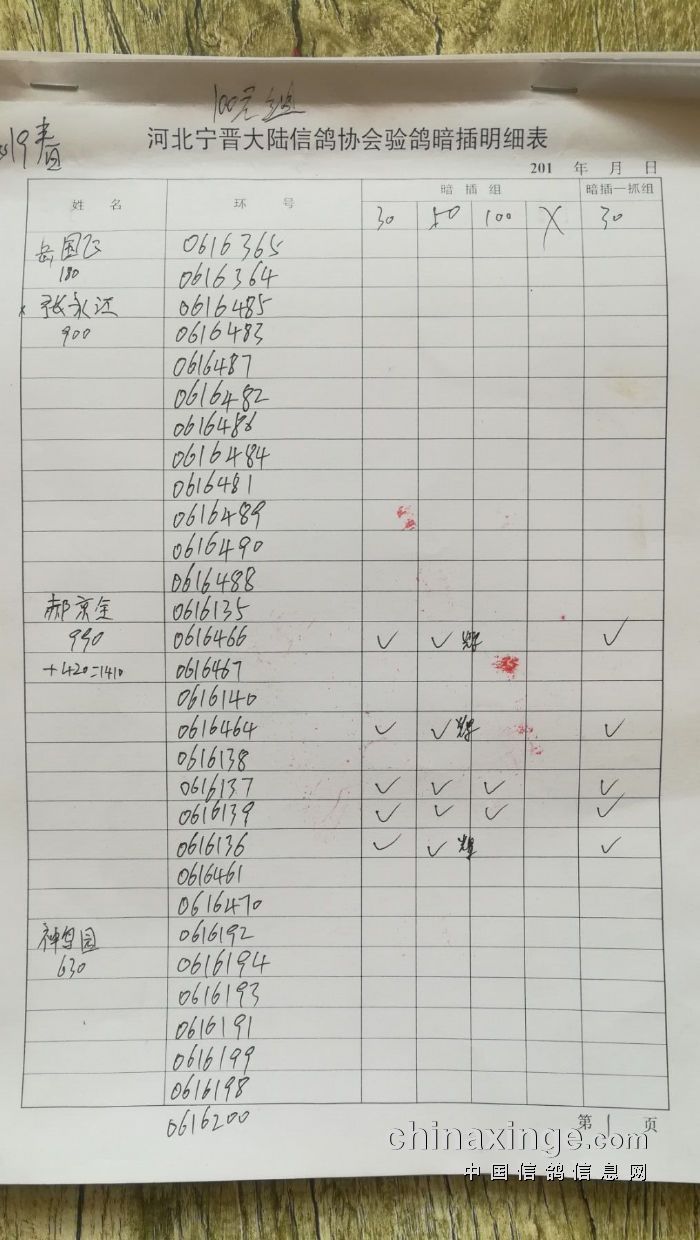 100元组
19春
河北宁晋大陆信鸽协会验鸽暗插明细表
201 年 月 日
姓 名 环 号 暗 插 组 暗插一抓组
30 50 100 X 30
岳国 0616365
180 0616364
张永达 0616485
900 0616483
0616487
0616482
0616486
0616484
0616481
0616489
0616490
0616488
郝京全 0616135
990 0616466 ✓ ✓ ✓
+420=1410 0616467
0616140
0616464 ✓ ✓ ✓
0616138
0616137 ✓ ✓ ✓ ✓
0616139 ✓ ✓ ✓ ✓
0616136 ✓ ✓ ✓
0616461
0616470
神鸟园 0616192
630 0616194
0616193
0616191
0616199
0616198
0616200
第 1 页
chinaxinge.com
中国信鸽信息网